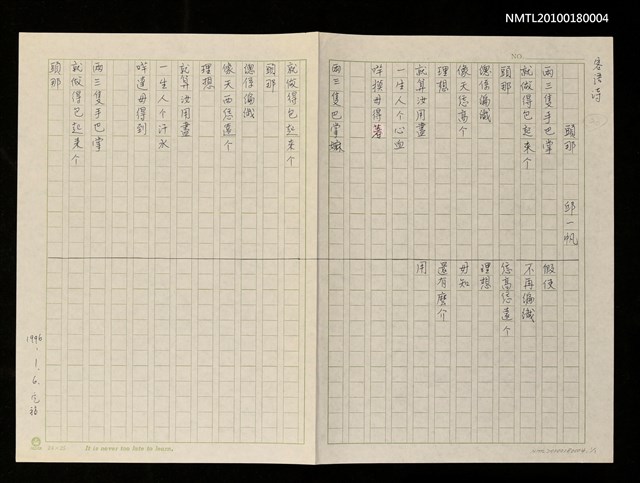 NMTL20100180004
NO.
客語詩
頭那
邱一帆
兩三隻手巴掌
就做得包起來个
頭那
偲偲編織
像天恁高个
理想
就算汝用盡
一生人个心血
咩摸毋得著
兩三隻巴掌嫲
就做得包起來个
頭那
偲偲編織
像天西恁遠个
理想
就算汝用盡
一生人个汗水
咩達毋得到
兩三隻手巴掌
就做得包起來个
頭那
假使
不再編織
恁高恁遠个
理想
毋知
還有麼介
用
1996.1.6.
It is never too late to learn.